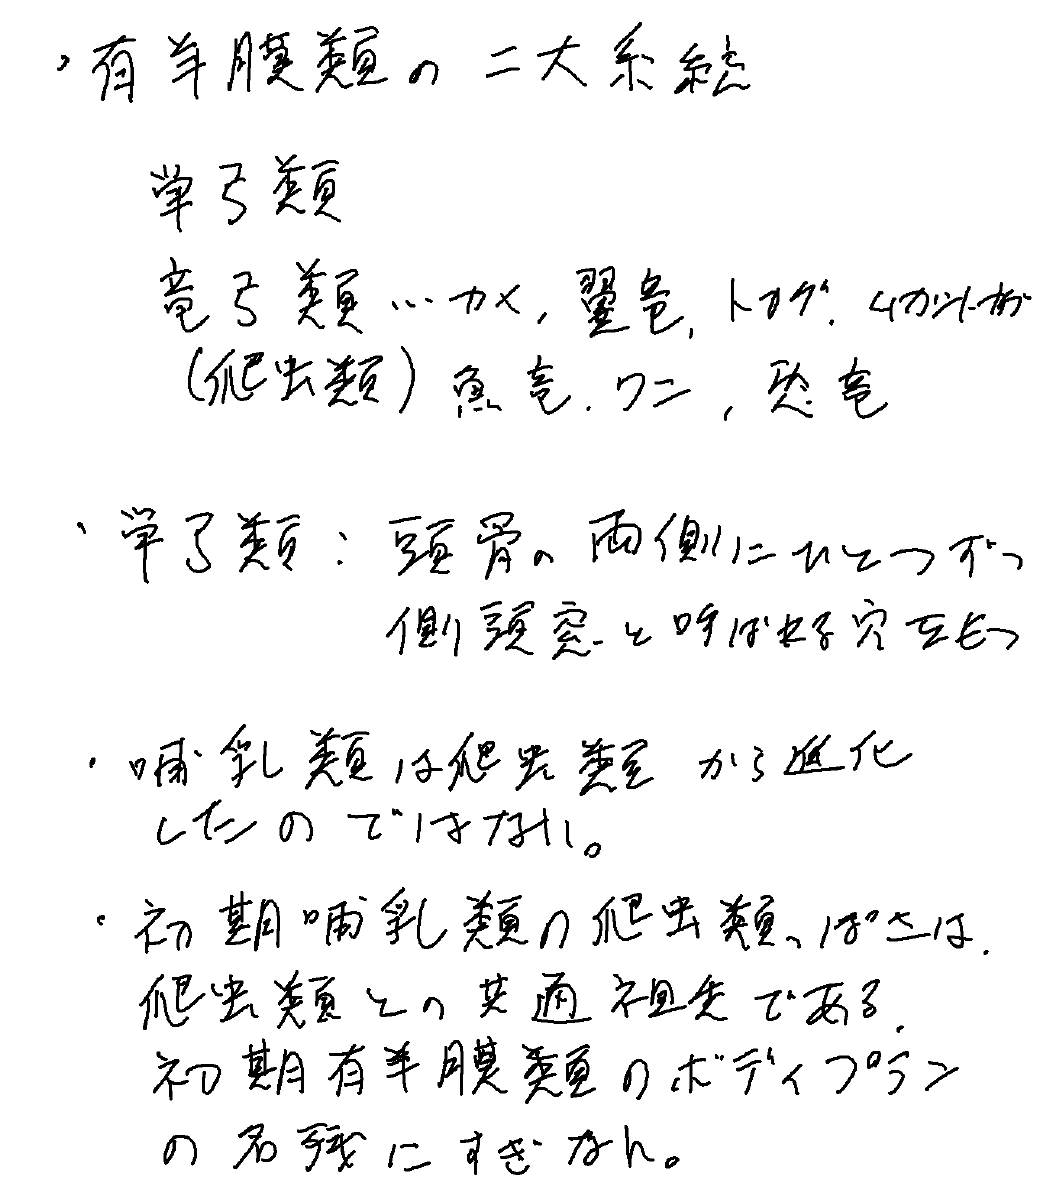 ・有羊膜類の二大系統
単弓類
竜弓類…カメ, 翼竜, トカゲ, ムカシトカゲ
(爬虫類) 魚竜, ワニ, 恐竜
・単弓類: 頭骨の両側にひとつずつ
側頭窓と呼ばれる穴をもつ
・哺乳類は爬虫類から進化
したのではない。
・初期哺乳類の爬虫類っぽさは,
爬虫類との共通祖先である,
初期有羊膜類のボディプラン
の名残にすぎない。